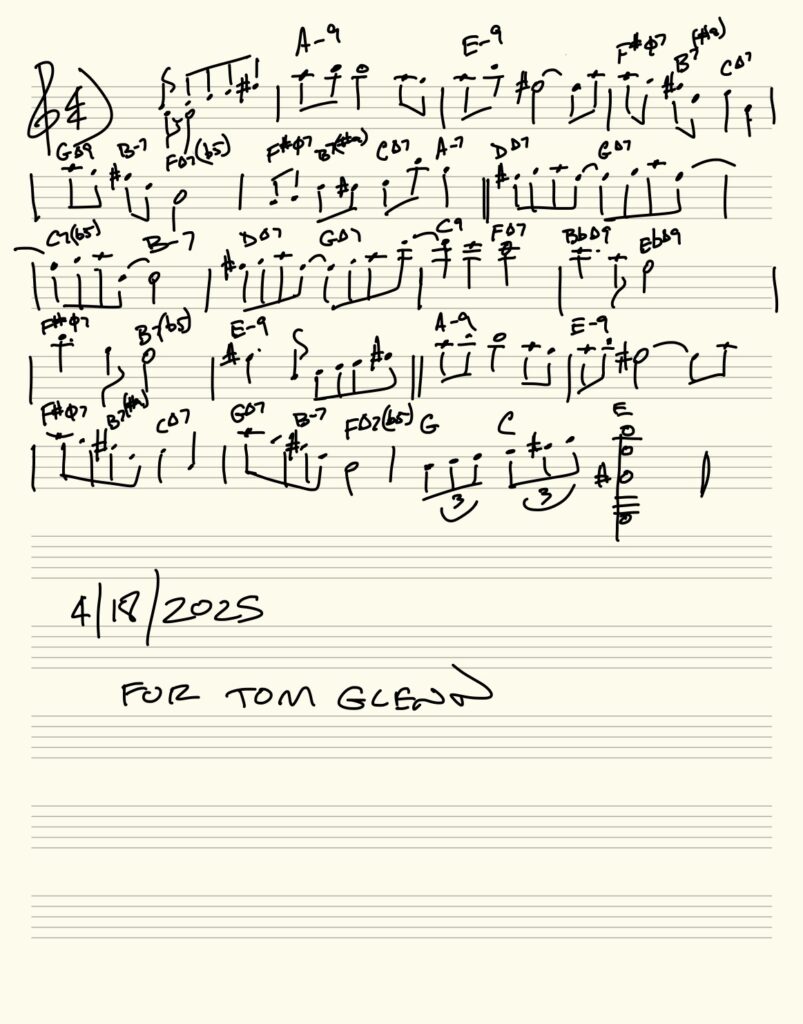 A-9 E-9 F#ø7 B7(#9) CΔ7
GΔ9 B-7 FΔ7(b5) F#ø7 B7(#9) CΔ7 A-7 DΔ7 GΔ7
C7(b5) B-7 DΔ7 GΔ7 C9 FΔ7 BbΔ9 EbΔ9
F#ø7 B7(b5) E-9 A-9 E-9
F#ø7 B7(#9) CΔ7 GΔ7 B-7 FΔ7(b5) G C E
3 3
4/18/2025
FOR TOM GLENN